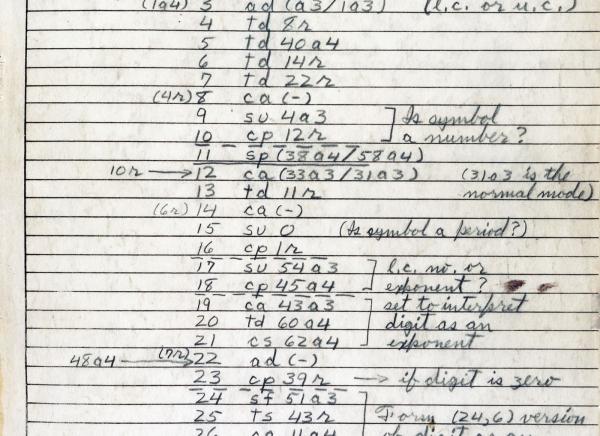 (1a4) 3 ad (a3/1a3) (l.c. or u.c.)
4 td 8r
5 td 40a4
6 td 14r
7 td 22r
(4r) 8 ca (-)
9 su 4a3 ] Is symbol
10 cp 12r a number?
11 sp (38a4/58a4)
10r → 12 ca (33a3/31a3) (31a3 is the
13 td 11r normal mode)
(6r) 14 ca (-)
15 su 0 (Is symbol a period?)
16 cp 1r
17 su 54a3 ] l.c. no. or
18 cp 45a4 exponent?
19 ca 43a3 ] set to interpret
20 td 60a4 digit as an
21 cs 62a4 exponent
48a4 → (7r) 22 ad (-)
23 cp 39r → if digit is zero
24 sf 51a3
25 ts 43r Form (24,6) version
26 ca 11a4 of digit as an